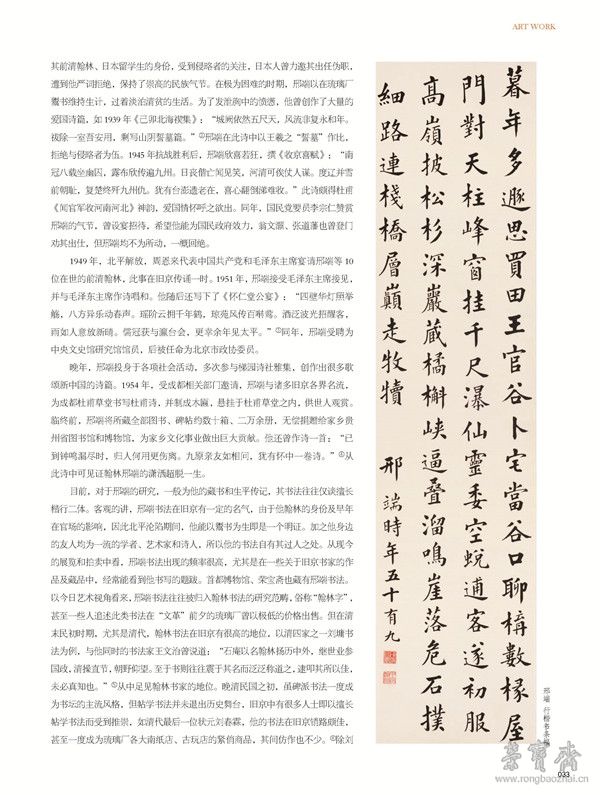 ART WORK
其前清翰林、日本留学生的身份，受到侵略者的关注，日本人曾力邀其出任伪职，
遭到他严词拒绝，保持了崇高的民族气节。在极为困难的时期，邢端以在琉璃厂
鬻书维持生计，过着淡泊清贫的生活。为了发泄胸中的愤懑，他曾创作了大量的
爱国诗篇，如 1939 年《己卯北海禊集》：“城阙依然五尺天，风流非复永和年。
祓除一室吾安用，剩写山阴誓墓篇。”邢端在此诗中以王羲之“誓墓”作比，
拒绝与侵略者为伍。1945 年抗战胜利后，邢端欣喜若狂，撰《收京喜赋》：“南
冠八载坐幽囚，露布欣传遍九州。日丧偕亡闻见笑，河清可俟仗人谋。度辽并雪
前朝耻，复楚终歼九州仇。犹有台澎遗老在，喜心翻倒涕难收。”此诗颇得杜甫
《闻官军收河南河北》神韵，爱国情怀呼之欲出。同年，国民党要员李宗仁赞赏
邢端的气节，曾设宴招待，希望他能为国民政府效力，翁文灏、张道藩也曾登门
劝其出仕，但邢端均不为所动，一概回绝。
1949 年，北平解放，周恩来代表中国共产党和毛泽东主席宴请邢端等 10
位在世的前清翰林，此事在旧京传诵一时。1951 年，邢端接受毛泽东主席接见，
并与毛泽东主席作诗唱和。他随后还写下了《怀仁堂公宴》：“四壁华灯照举
觞，八方异乐动春声。瑶阶云拥千年鹤，琼苑风传百啭莺。酒泛波光招醒客，
雨如人意放新晴。儒冠获与瀛台会，更幸余年见太平。”同年，邢端受聘为
中央文史馆研究馆馆员，后被任命为北京市政协委员。
晚年，邢端投身于各项社会活动，多次参与梯园诗社雅集，创作出很多歌
颂新中国的诗篇。1954 年，受成都相关部门邀请，邢端与诸多旧京各界名流，
为成都杜甫草堂书写杜甫诗，并制成木匾，悬挂于杜甫草堂之内，供世人观赏。
临终前，邢端将所藏全部图书、碑帖约数十箱、二万余册，无偿捐赠给家乡贵
州省图书馆和博物馆，为家乡文化事业做出巨大贡献。他还曾作诗一首：“已
到钟鸣漏尽时，归人何用更伤离。九原亲友如相问，犹有怀中一卷诗。”从
此诗中可见证翰林邢端的潇洒超脱一生。
目前，对于邢端的研究，一般为他的藏书和生平传记，其书法往往仅谈擅长
楷行二体。客观的讲，邢端书法在旧京有一定的名气，由于他翰林的身份及早年
在官场的影响，因此北平沦陷期间，他能以鬻书为生即是一个明证。加之他身边
的友人均为一流的学者、艺术家和诗人，所以他的书法自有其过人之处。从现今
的展览和拍卖中看，邢端书法出现的频率很高，尤其是在一些关于旧京书家的作
品及藏品中，经常能看到他书写的题跋。首都博物馆、荣宝斋也藏有邢端书法。
以今日艺术视角看来，邢端书法往往被归入翰林书法的研究范畴，俗称“翰林字”，
甚至一些人追述此类书法在“文革”前夕的琉璃厂曾以极低的价格出售。但在清
末民初时期，尤其是清代，翰林书法在旧京有很高的地位，以清四家之一刘墉书
法为例，与他同时的书法家王文治曾说道：“石庵以名翰林扬历中外，继世业参
国政，清操直节，朝野仰望。至于书则往往震于其名而泛泛称道之，逮叩其所以佳，
未必真知也。”从中足见翰林书家的地位。晚清民国之初，虽碑派书法一度成
为书坛的主流风格，但帖学书法并未退出历史舞台，旧京中有很多人士即以擅长
帖学书法而受到推崇，如清代最后一位状元刘春霖，他的书法在旧京销路颇佳，
甚至一度成为琉璃厂各大南纸店、古玩店的紧俏商品，其间仿作也不少。除刘
暮年多遯思買田王官谷卜宅當谷口聊構數椽屋
門對天柱峰窗挂千尺瀑仙靈委空蛻逋客遂初服
高嶺披松杉深巖蔵橘槲峽逼疊溜鳴崖落危石撲
細路連棧橋層巔走牧犢
邢端時年五十有九
邢端 行楷书条幅
荣宝斋
033
www.rongbaozhai.cn